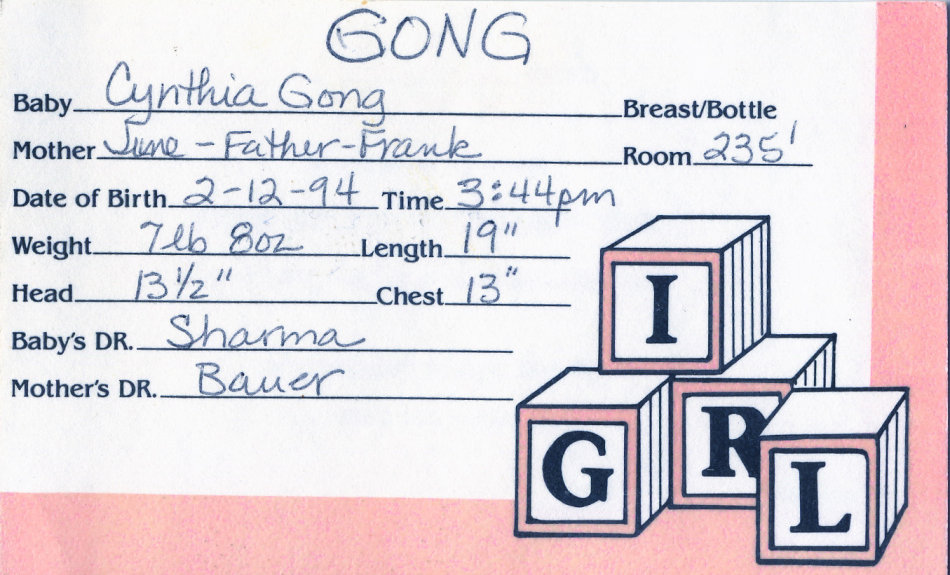 GONG
Baby Cynthia Gong Breast/Bottle
Mother June - Father - Frank Room 235'
Date of Birth 2-12-94 Time 3:44pm
Weight 7lb 8oz Length 19"
Head 13 1/2" Chest 13"
Baby's DR. Sharma
Mother's DR. Bauer
I
G R L